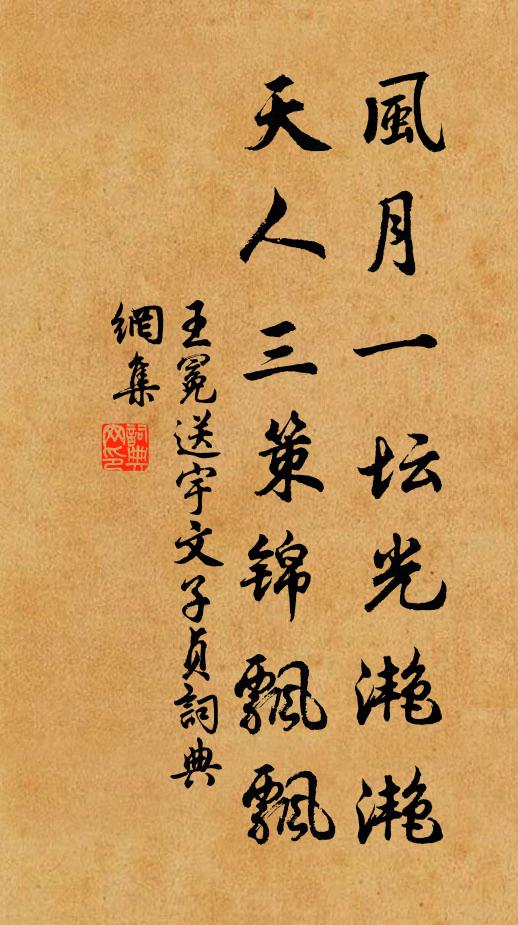 風月一坛光滟滟
天人三策锦飄飄
王冕送宇文子貞詞典
網集
詞典
网印